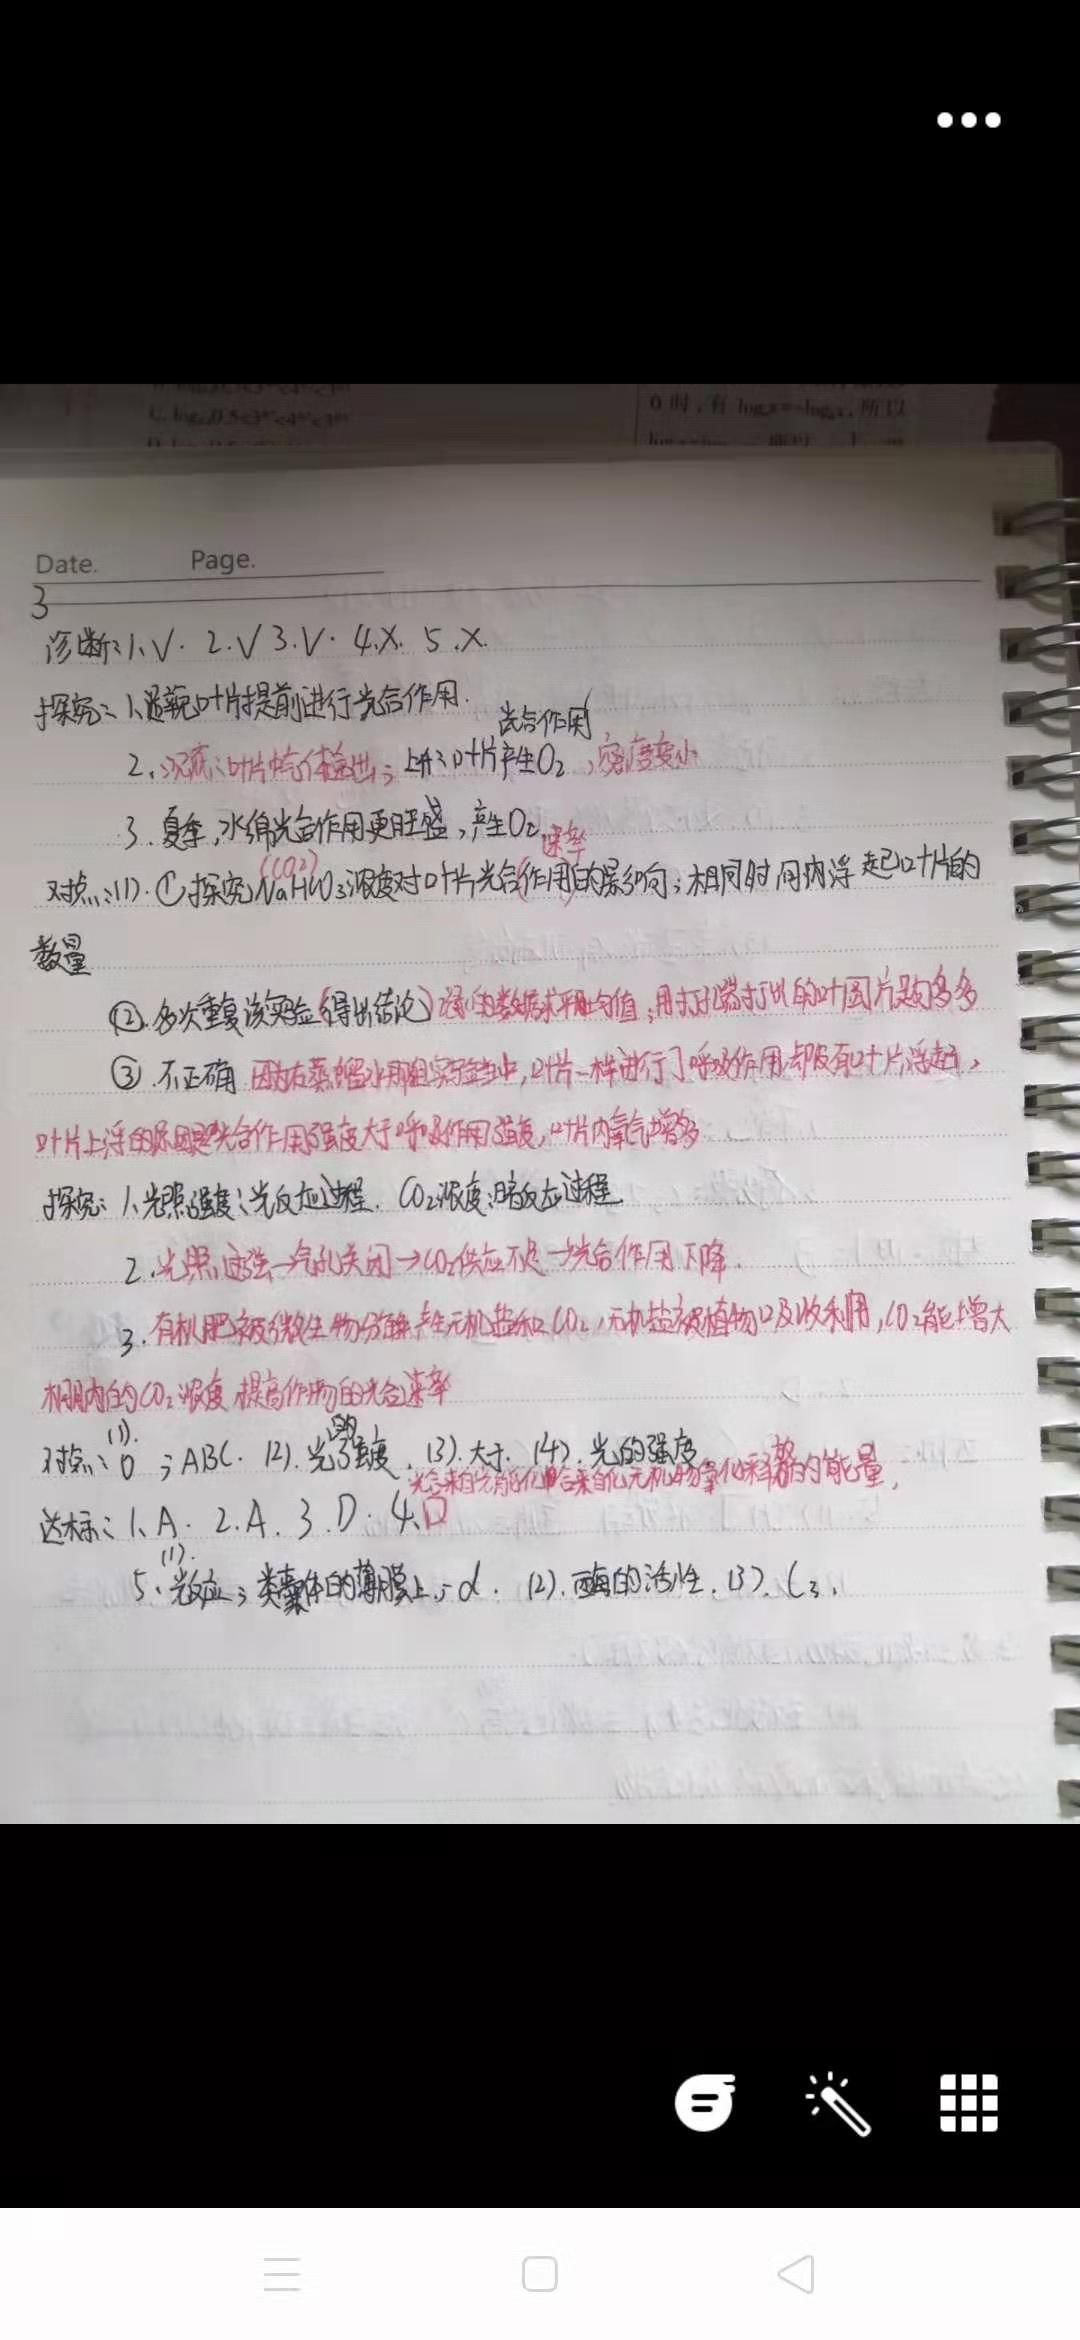 C. log₂0.5<3
0时,有
所以
Date. Page.
3
诊断:1.√. 2.√ 3.√. 4.X. 5.X.
探究:1.避免叶片提前进行光合作用.
光合作用
2.沉底:叶片气体逸出; 上升:叶片产生O₂,密度变小
3.夏季,水绵光合作用更旺盛,产生O₂
速率
(CO₂)
对点:(1).①探究NaHCO₃浓度对叶片光合(作用)的影响;相同时间内浮起叶片的
数量
②.多次重复该实验(得出结论) 的数据求平均值;用打孔器打出的叶圆片足够多
③.不正确 因为在蒸馏水那组实验当中,叶片一样进行了呼吸作用却没有叶片浮起,
叶片上浮的原因是光合作用强度大于呼吸作用强度,叶片内氧气增多
探究:1.光照强度:光反应过程. CO₂浓度:暗反应过程
2.光照过强→气孔关闭→CO₂供应不足→光合作用下降.
3.有机肥被微生物分解产生无机盐和CO₂,无机盐被植物吸收利用,CO₂能增大
棚内的CO₂浓度,提高作物的光合速率
对点:(1). 0 ;ABC. (2).光的强度. (3).大于. (4).光的强度.
光合来自光能化合来自化无机物氧化释放的能量,
达标:1.A. 2.A. 3.D. 4.D
5.(1).光反应;类囊体的薄膜上;d. (2).酶的活性. (3).C₃.